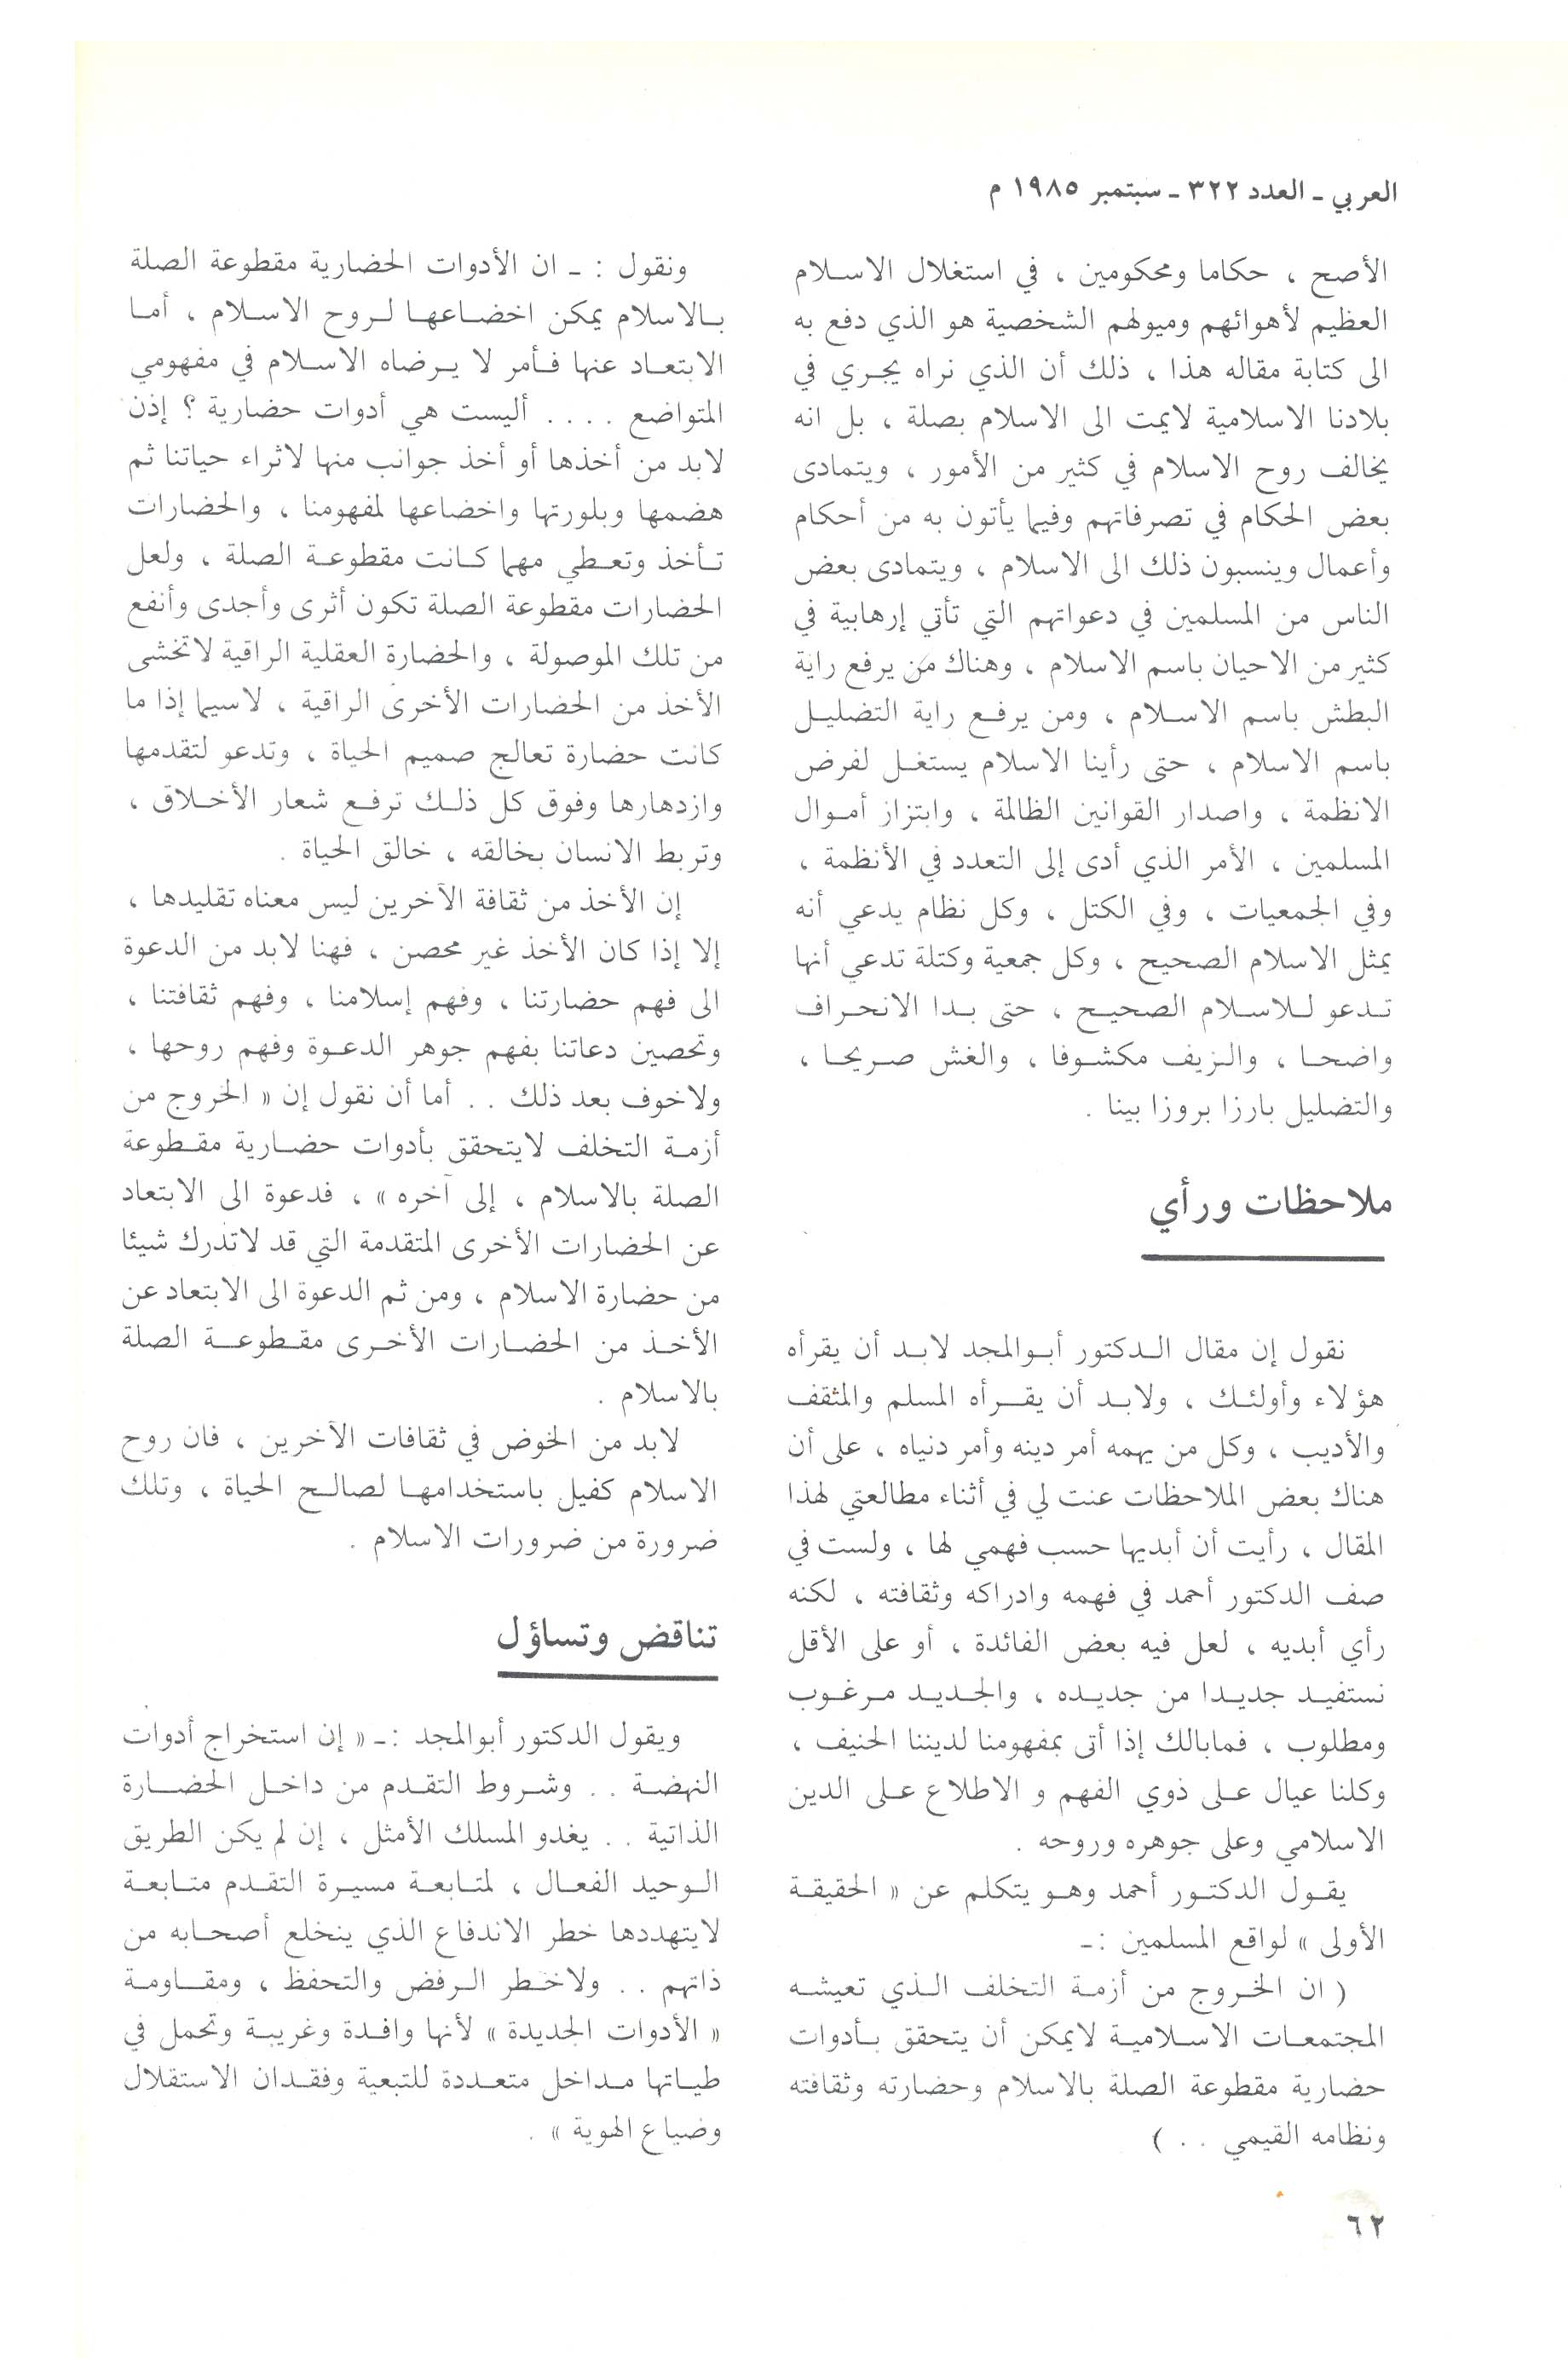 العربي ـ العدد ٣٢٢ ـ سبتمبر ١٩٨٥ م
الأصح ، حكاما ومحكومين ، في استغلال الاسلام
العظيم لأهوائهم وميولهم الشخصية هو الذي دفع به
الى كتابة مقاله هذا ، ذلك أن الذي نراه يجري في
بلادنا الاسلامية لايمت الى الاسلام بصلة ، بل انه
يخالف روح الاسلام في كثير من الأمور ، ويتمادى
بعض الحكام في تصرفاتهم وفيما يأتون به من أحكام
وأعمال وينسبون ذلك الى الاسلام ، ويتمادى بعض
الناس من المسلمين في دعواتهم التي تأتي إرهابية في
كثير من الاحيان باسم الاسلام ، وهناك من يرفع راية
البطش باسم الاسلام ، ومن يرفع راية التضليل
باسم الاسلام ، حتى رأينا الاسلام يستغل لفرض
الانظمة ، واصدار القوانين الظالمة ، وابتزاز أموال
المسلمين ، الأمر الذي أدى إلى التعدد في الأنظمة ،
وفي الجمعيات ، وفي الكتل ، وكل نظام يدعي أنه
يمثل الاسلام الصحيح ، وكل جمعية وكتلة تدعي أنها
تدعو للاسلام الصحيح ، حتى بدا الانحراف
واضحا ، والزيف مكشوفا ، والغش صريحا ،
والتضليل بارزا بروزا بينا .
ملاحظات ورأي
نقول إن مقال الدكتور أبوالمجد لابد أن يقرأه
هؤلاء وأولئك ، ولابد أن يقرأه المسلم والمثقف
والأديب ، وكل من يهمه أمر دينه وأمر دنياه ، على أن
هناك بعض الملاحظات عنت لي في أثناء مطالعتي لهذا
المقال ، رأيت أن أبديها حسب فهمي لها ، ولست في
صف الدكتور أحمد في فهمه وادراكه وثقافته ، لكنه
رأي أبديه ، لعل فيه بعض الفائدة ، أو على الأقل
نستفيد جديدا من جديده ، والجديد مرغوب
ومطلوب ، فمابالك إذا أتى بمفهومنا لديننا الحنيف ،
وكلنا عيال على ذوي الفهم و الاطلاع على الدين
الاسلامي وعلى جوهره وروحه .
يقول الدكتور أحمد وهو يتكلم عن « الحقيقة
الأولى » لواقع المسلمين :ـ
( ان الخروج من أزمة التخلف الذي تعيشه
المجتمعات الاسلامية لايمكن أن يتحقق بأدوات
حضارية مقطوعة الصلة بالاسلام وحضارته وثقافته
ونظامه القيمي . . )
ونقول : ـ ان الأدوات الحضارية مقطوعة الصلة
بالاسلام يمكن اخضاعها لروح الاسلام ، أما
الابتعاد عنها فأمر لا يرضاه الاسلام في مفهومي
المتواضع . . . . أليست هي أدوات حضارية ؟ إذن
لابد من أخذها أو أخذ جوانب منها لاثراء حياتنا ثم
هضمها وبلورتها واخضاعها لمفهومنا ، والحضارات
تأخذ وتعطي مهما كانت مقطوعة الصلة ، ولعل
الحضارات مقطوعة الصلة تكون أثرى وأجدى وأنفع
من تلك الموصولة ، والحضارة العقلية الراقية لاتخشى
الأخذ من الحضارات الأخرى الراقية ، لاسيما إذا ما
كانت حضارة تعالج صميم الحياة ، وتدعو لتقدمها
وازدهارها وفوق كل ذلك ترفع شعار الأخلاق ،
وتربط الانسان بخالقه ، خالق الحياة .
إن الأخذ من ثقافة الآخرين ليس معناه تقليدها ،
إلا إذا كان الأخذ غير محصن ، فهنا لابد من الدعوة
الى فهم حضارتنا ، وفهم إسلامنا ، وفهم ثقافتنا ،
وتحصين دعاتنا بفهم جوهر الدعوة وفهم روحها ،
ولاخوف بعد ذلك . . أما أن نقول إن « الخروج من
أزمة التخلف لايتحقق بأدوات حضارية مقطوعة
الصلة بالاسلام ، إلى آخره » ، فدعوة الى الابتعاد
عن الحضارات الأخرى المتقدمة التي قد لاتدرك شيئا
من حضارة الاسلام ، ومن ثم الدعوة الى الابتعاد عن
الأخذ من الحضارات الأخرى مقطوعة الصلة
بالاسلام .
لابد من الخوض في ثقافات الآخرين ، فان روح
الاسلام كفيل باستخدامها لصالح الحياة ، وتلك
ضرورة من ضرورات الاسلام .
تناقض وتساؤل
ويقول الدكتور أبوالمجد :ـ « إن استخراج أدوات
النهضة . . وشروط التقدم من داخل الحضارة
الذاتية . . يغدو المسلك الأمثل ، إن لم يكن الطريق
الوحيد الفعال ، لمتابعة مسيرة التقدم متابعة
لايتهددها خطر الاندفاع الذي ينخلع أصحابه من
ذاتهم . . ولاخطر الرفض والتحفظ ، ومقاومة
« الأدوات الجديدة » لأنها وافدة وغريبة وتحمل في
طياتها مداخل متعددة للتبعية وفقدان الاستقلال
وضياع الهوية » .
٦٢